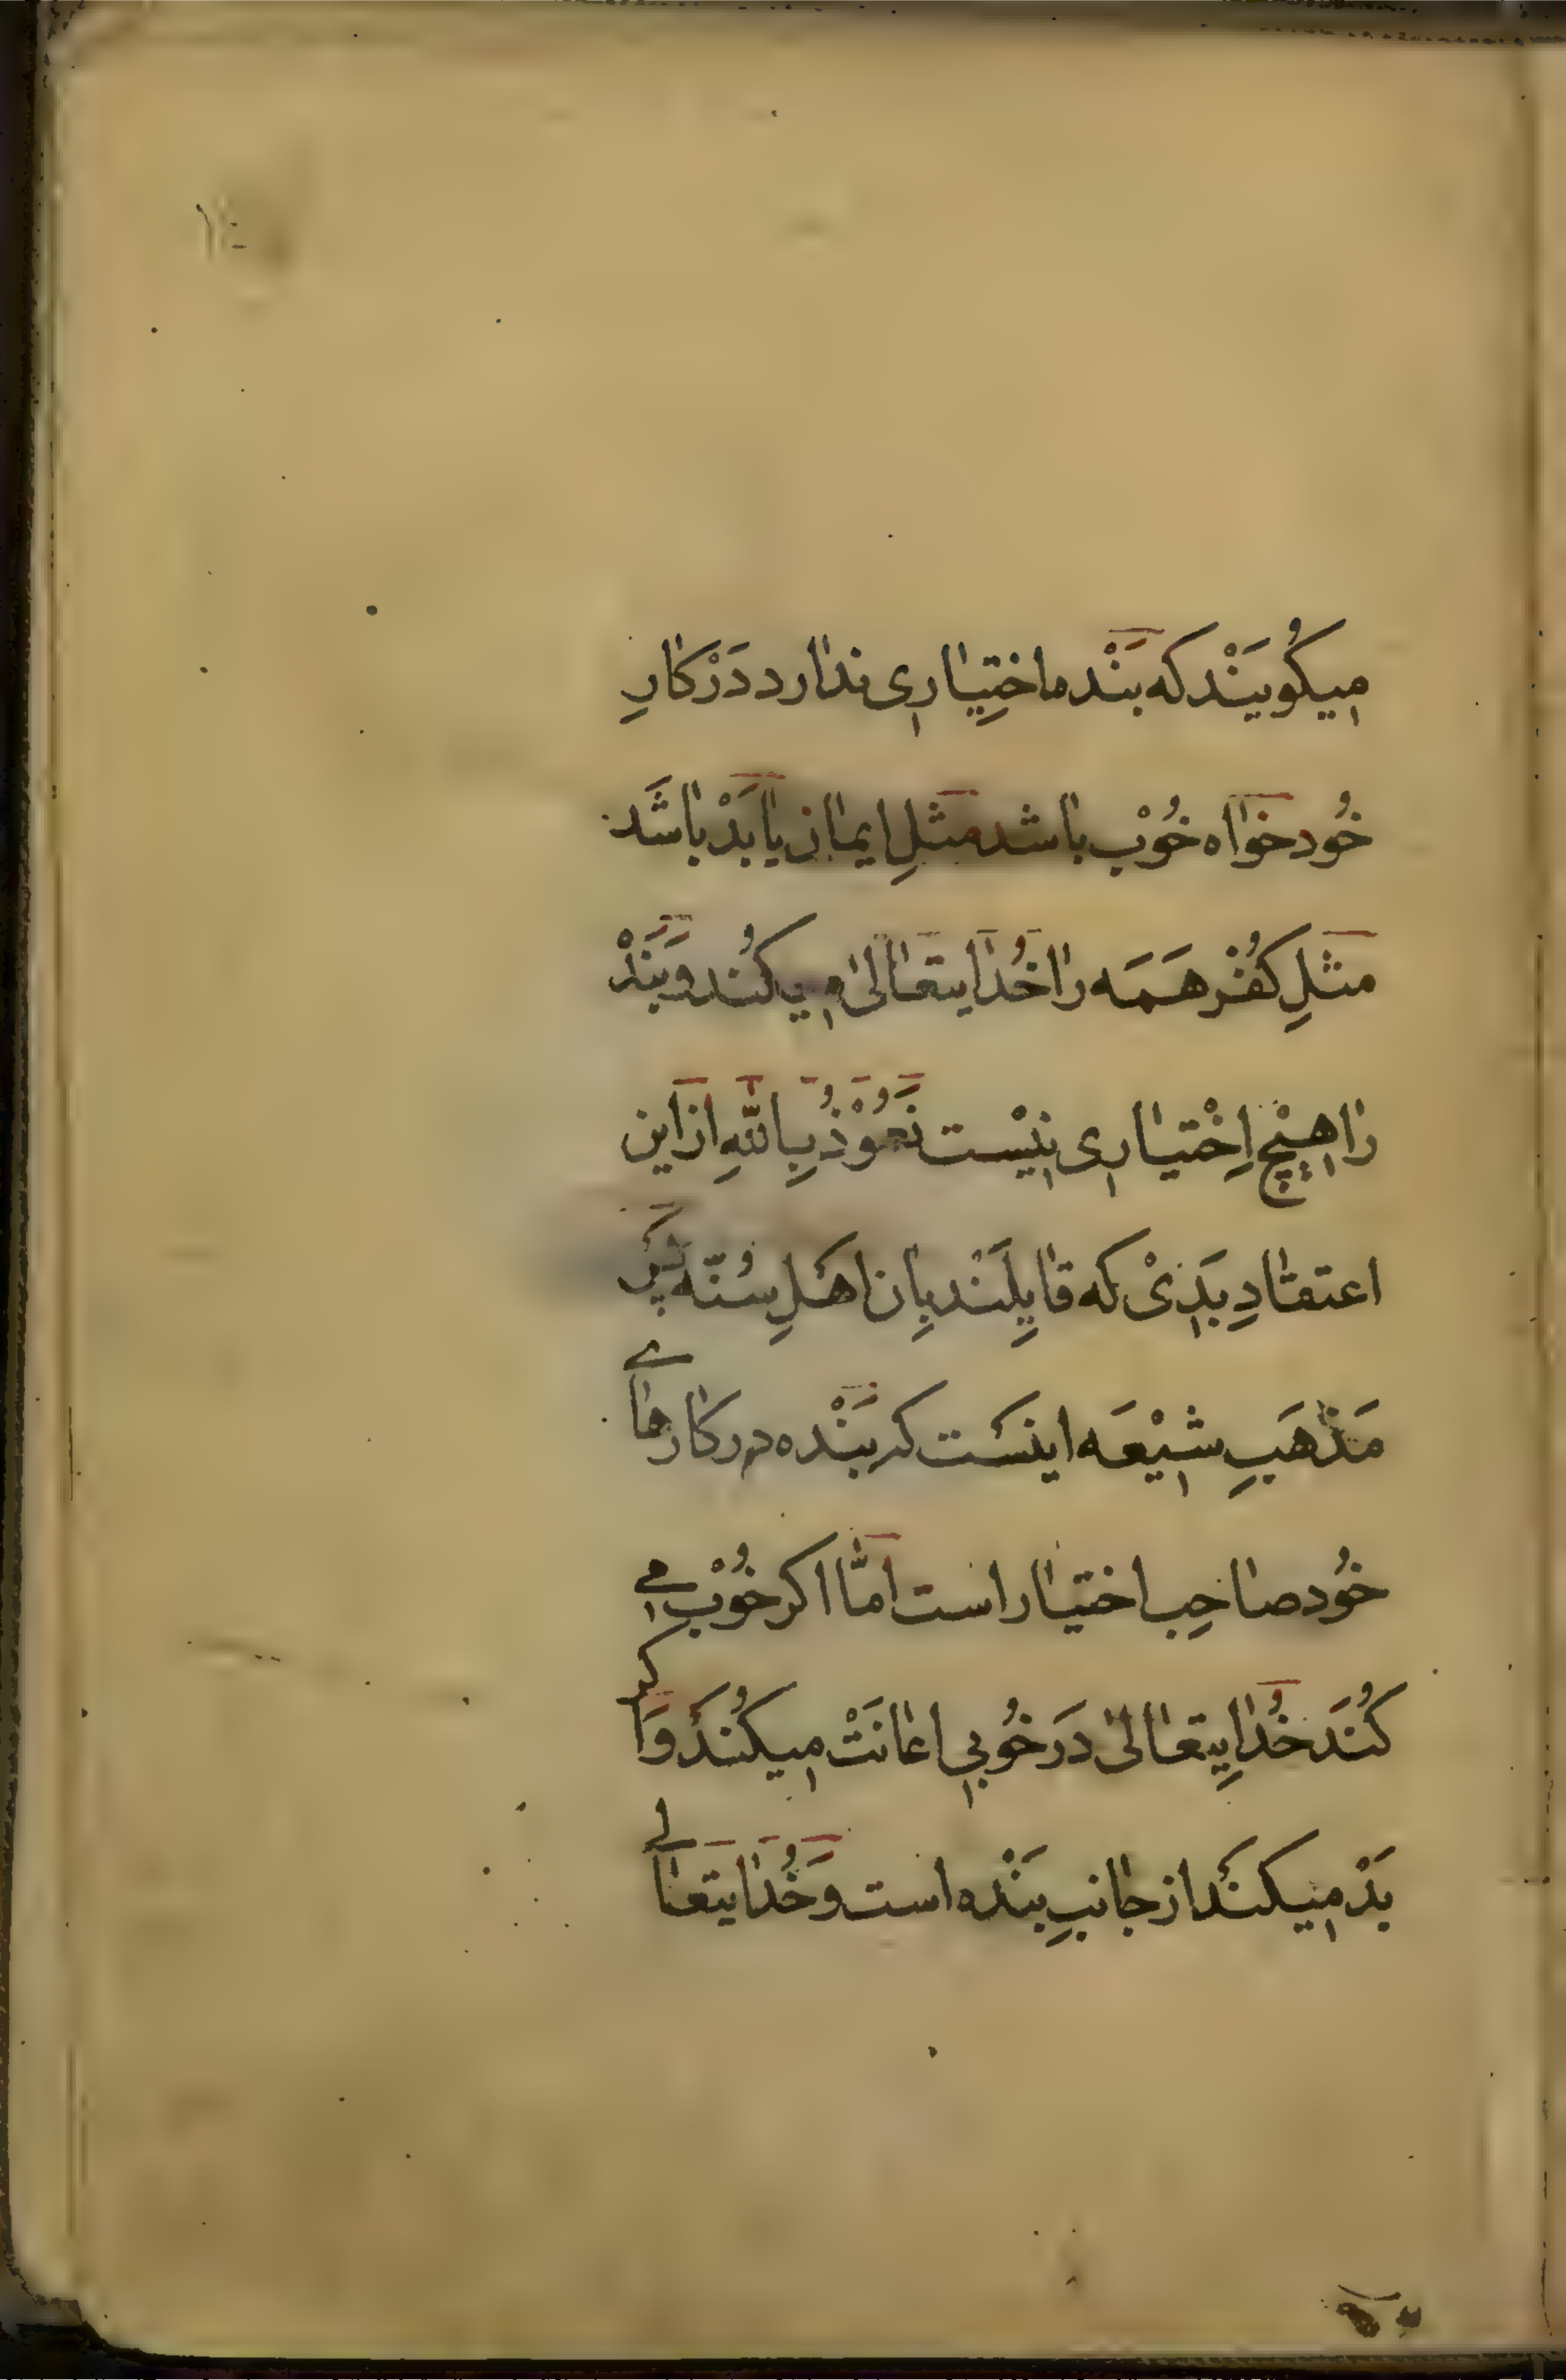 میکُویَنْد که بَنْده اختِیاری ندارد دَرْکارِ
خُود خَواه خُوْب باشد مَثَلِ ایمان یا بَدْ باشَد
مَثَلِ کُفْر هَمَه را خُدایتَعالیٰ می کُند وَ بَنْدَ
را هِیْچ اِخْتیاری نیْست نَعُوْذُ بِاللّٰهِ اَز این
اعتقادِ بَدِیْ که قایِلَنْد بِان اهَلِ سُنّه پَس
مَذْهَبِ شیْعَه اینَست که بَنْده در کارهاے
خُود صاحِب اختیار است اَمّا اکر خُوْب مے
کُنَد خُدایِتعالیٰ دَر خُوبی اعانَتْ میکُنَد وَاکر
بَدْ میکنَد از جانبِ بَنْده است وَ خُدایتَعالے